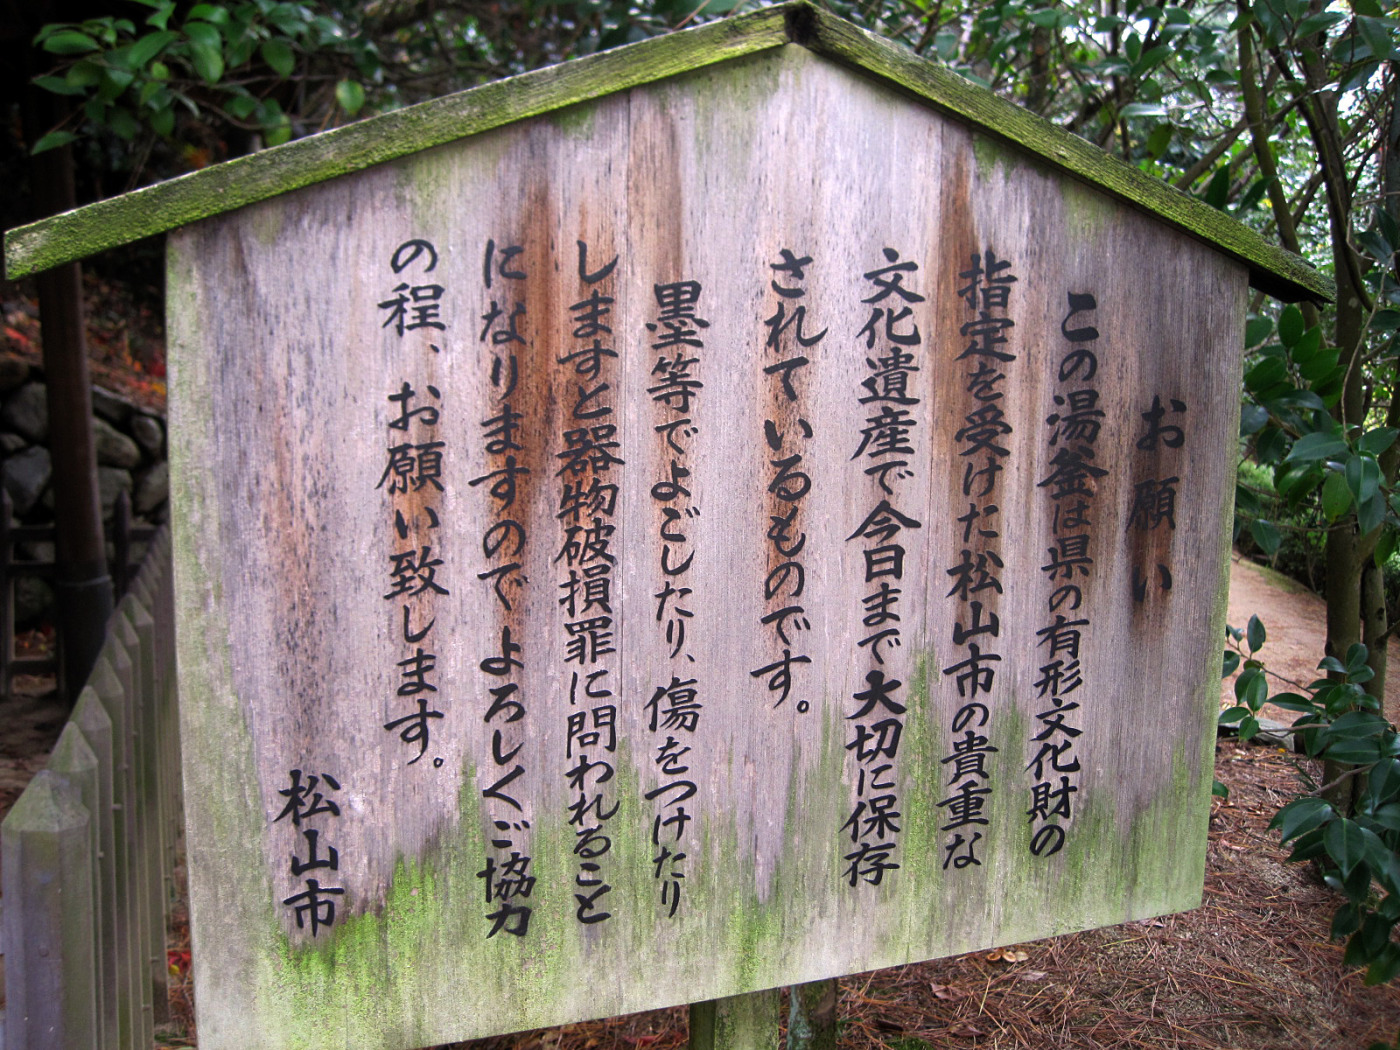 お願い
この湯釜は県の有形文化財の
指定を受けた松山市の貴重な
文化遺産で今日まで大切に保存
されているものです。
墨等でよごしたり、傷をつけたり
しますと器物破損罪に問われること
になりますのでよろしくご協力
の程、お願い致します。
松山市